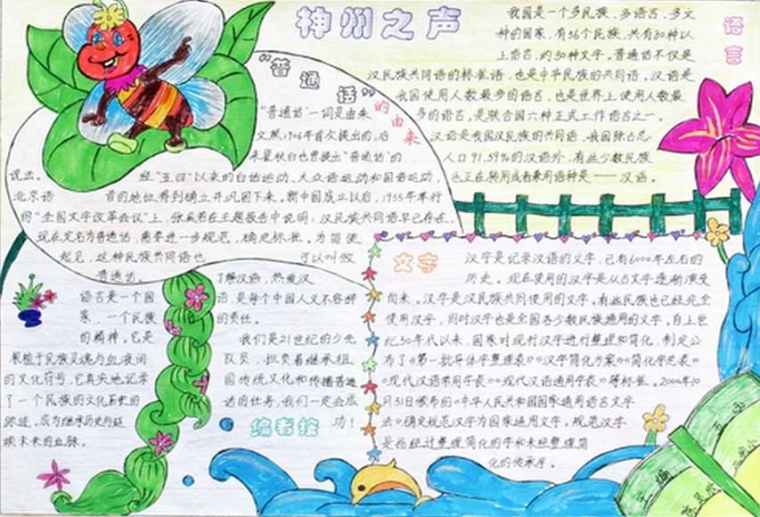 神州之声
语言
我国是一个多民族、多语言、多文
种的国家，有56个民族，共有80种以
上语言，约30种文字。普通话不仅是
汉民族共同语的标准语，也是中华民族的共同语。汉语是
我国使用人数最多的语言，也是世界上使用人数最
多的语言，是联合国六种正式工作语言之一。
汉语是我国汉民族的共同语，我国除占总
人口91.59%的汉族使用汉语外，有些少数民族
也正在转用或兼用语种是——汉语。
"普通话"
的由来
"普通话"一词是由朱
文熊1906年首次提出的，后
来瞿秋白也曾提出"普通话"的
说法。 经"五四"以来的白话运动、大众语运动和国语运动，
北京语 音的地位得到确立并巩固下来。新中国成立以后，1955年举行
的"全国文字改革会议"上，张奚若在主题报告中说明：汉民族共同语早已存在，
现在定名为普通话，需要进一步规范，确定标准。为简便
起见，这种民族共同语也 可以叫做
普通话。
语言是一个国
家、一个民族
的精神。它是
根植于民族灵魂与血液间
的文化符号，它真实地记录
了一个民族的文化历史的
踪迹，成为继承历史与延
续未来的血脉。
了解汉语，热爱汉
语，是每个中国人义不容辞
的责任。
我们是21世纪的少先
队员，担负着继承祖
国传统文化和传播普通
话的任务，我们一定会成
功！
编者按
文字
汉字是记录汉语的文字，已有6000年左右的
历史。现在使用的汉字是从古文字逐渐演变
而来。汉字是汉民族共同使用的文字。有些民族也已经完全
使用汉字，同时汉字也是全国各少数民族通用的文字。自上世
纪50年代以来，国家对现行汉字进行整理和简化，制定公
布了《第一批异体字整理表》《汉字简化方案》《简化字总表》
《现代汉语常用字表》《现代汉语通用字表》等标准。2000年10
月31日颁布的《中华人民共和国国家通用语言文字
法》确定规范汉字为国家通用文字。规范汉字
是指经过整理简化的字和未经整理简
化的传承字。